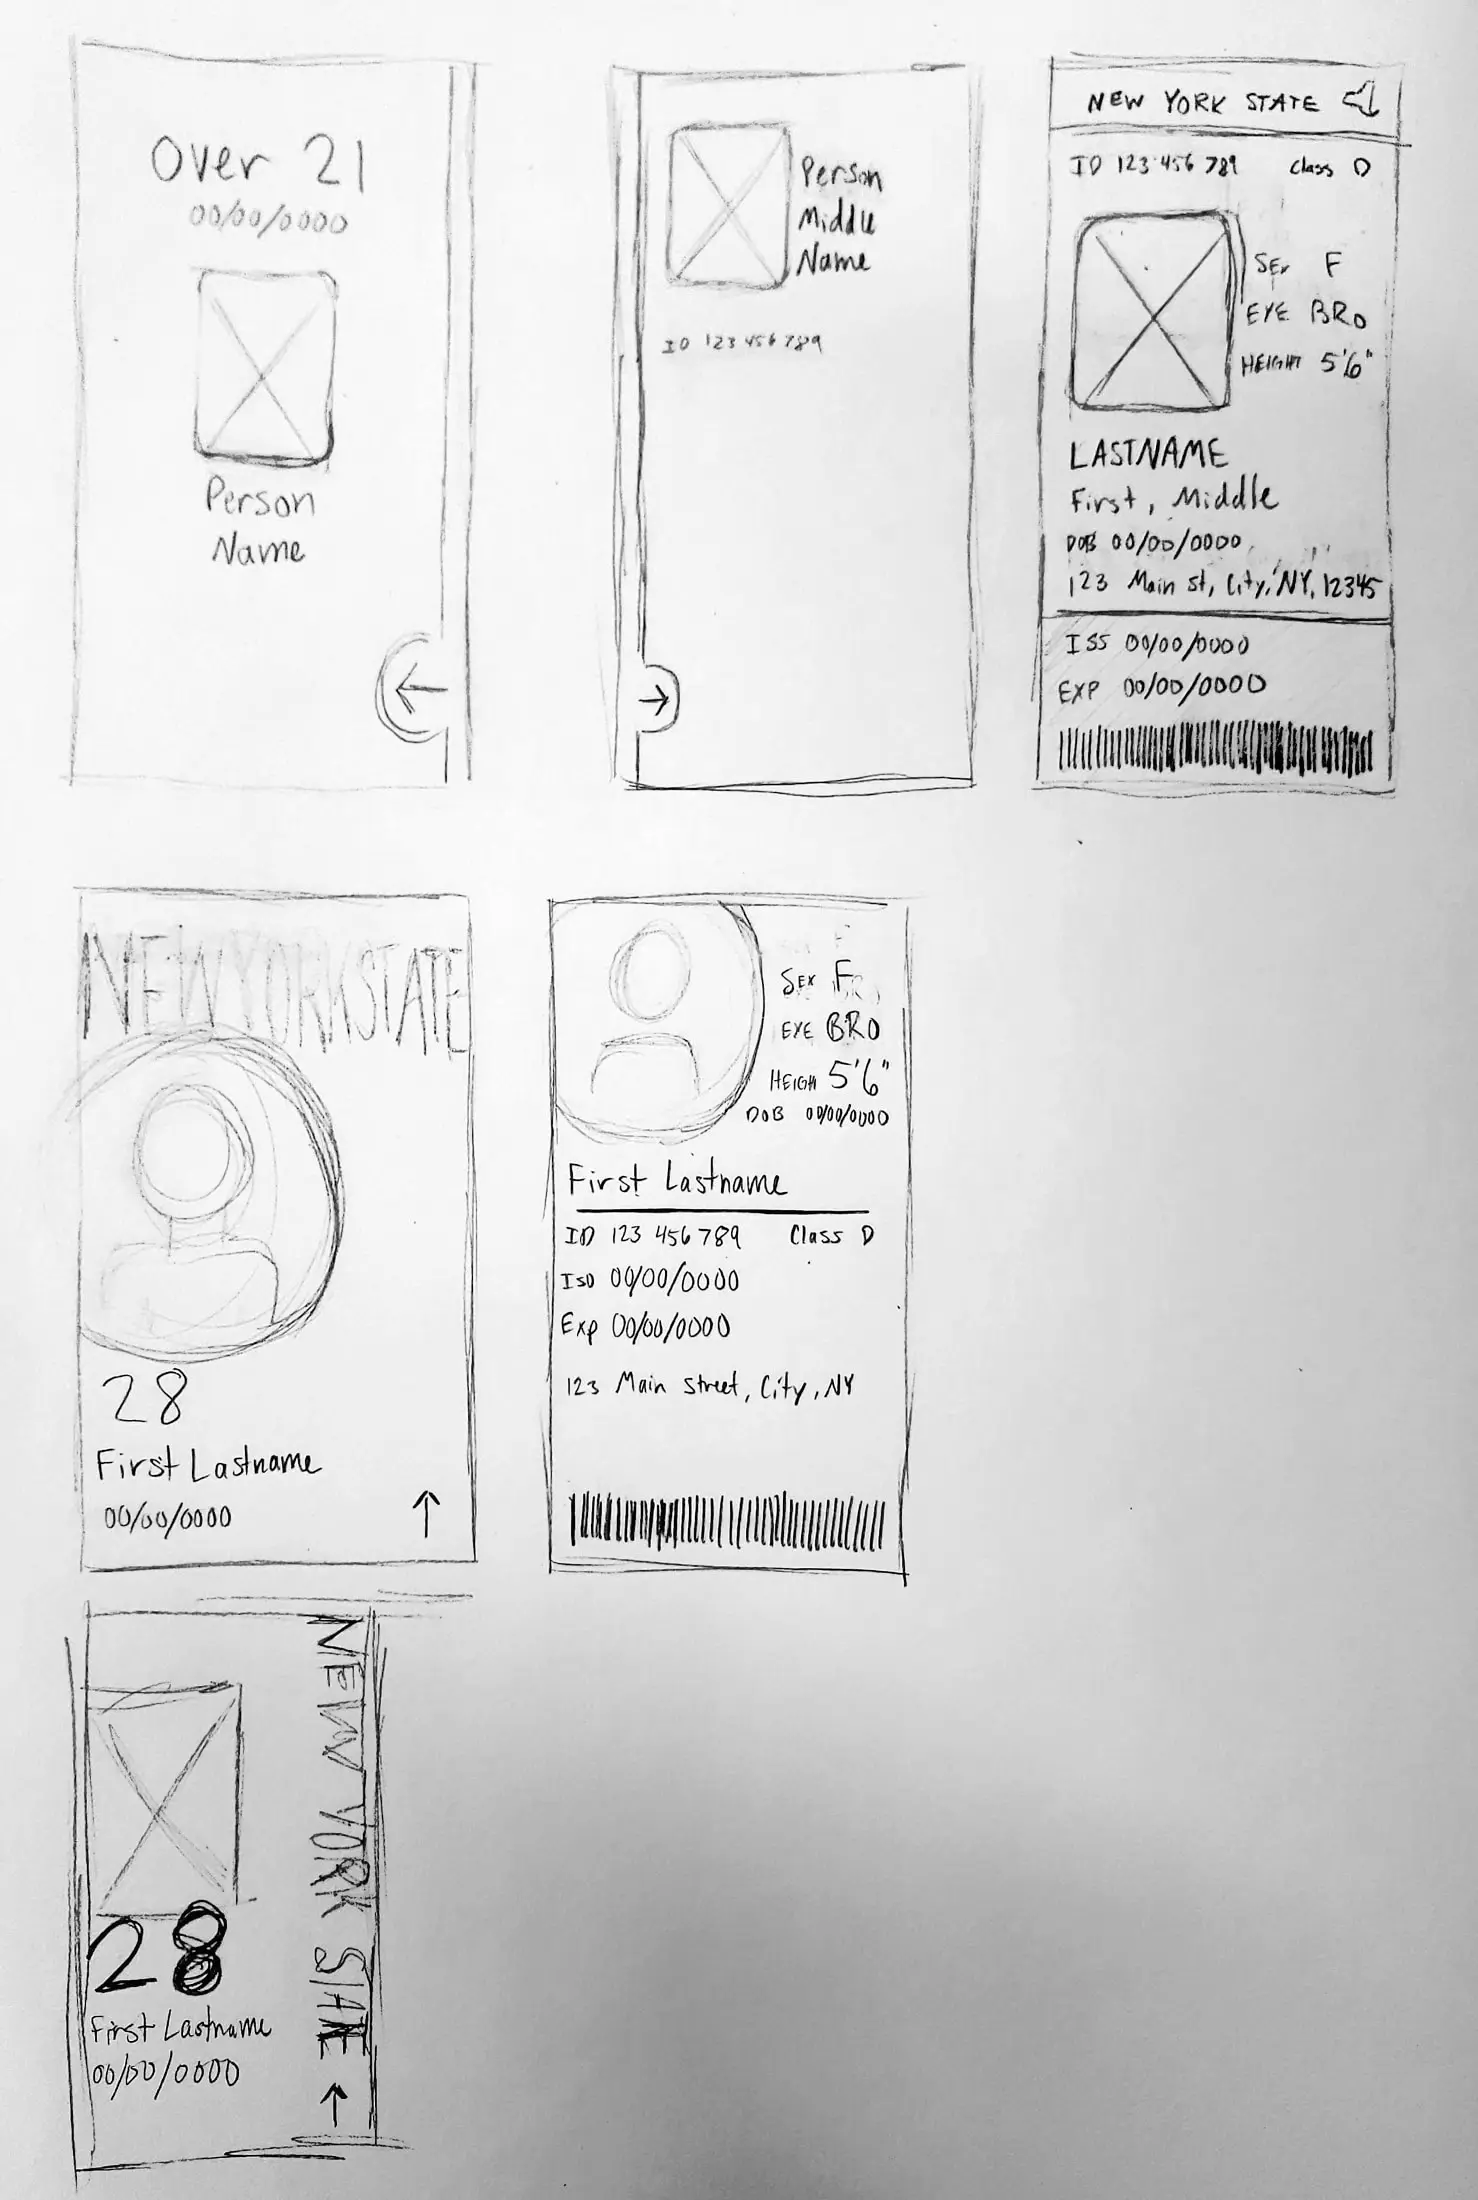 Over 21
00/00/0000
Person
Name
Person
Middle
Name
ID 123 456 789
NEW YORK STATE
ID 123 456 789 Class D
Sex F
EYE BRO
HEIGHT 5'6"
LASTNAME
First, Middle
DOB 00/00/0000
123 Main St, City, NY, 12345
ISS 00/00/0000
EXP 00/00/0000
NEW YORK STATE
28
First Lastname
00/00/0000
Sex F
EYE BRO
HEIGH 5'6"
DOB 00/00/0000
First Lastname
ID 123 456 789 Class D
ISD 00/00/0000
Exp 00/00/0000
123 Main Street, City, NY
NEW YORK STATE
28
First Lastname
00/00/0000